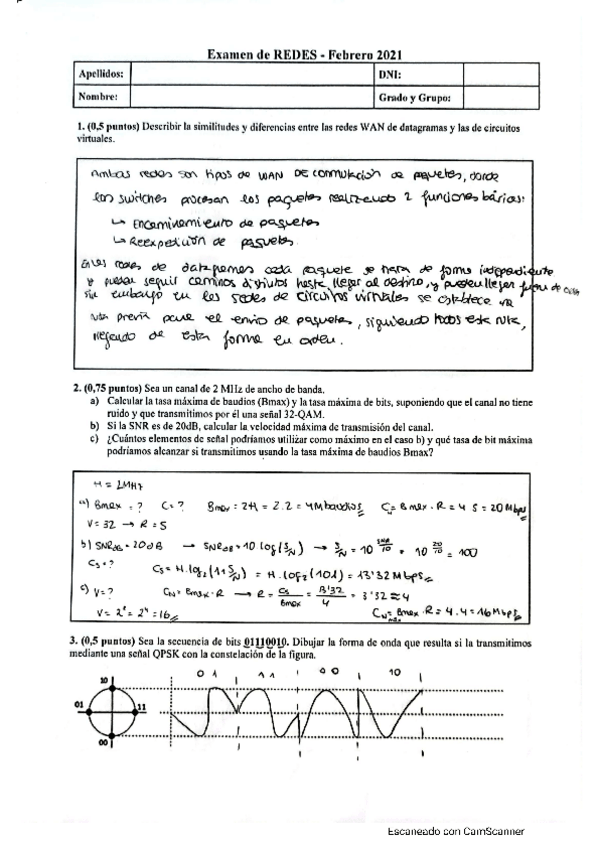 Examen de REDES - Febrero 2021
Apellidos: DNI:
Nombre: Grado y Grupo:
1. (0,5 puntos) Describir la similitudes y diferencias entre las redes WAN de datagramas y las de circuitos
virtuales.
Ambas redes son tipos de WAN DE conmutación de paquetes, donde
los switches procesan los paquetes realizando 2 funciones básicas:
↳ Encaminamiento de paquetes
↳ Reexpedición de paquetes.
En las redes de datagramas cada paquete se trata de forma independiente
y pueden seguir caminos distintos hasta llegar al destino, y pueden llegar fuera de orden
sin embargo en las redes de circuitos virtuales se establece una
ruta previa para el envío de paquetes, siguiendo todos esta ruta,
llegando de esta forma en orden.
2. (0,75 puntos) Sea un canal de 2 MHz de ancho de banda.
a) Calcular la tasa máxima de baudios (Bmax) y la tasa máxima de bits, suponiendo que el canal no tiene
ruido y que transmitimos por él una señal 32-QAM.
b) Si la SNR es de 20dB, calcular la velocidad máxima de transmisión del canal.
c) ¿Cuántos elementos de señal podríamos utilizar como máximo en el caso b) y qué tasa de bit máxima
podríamos alcanzar si transmitimos usando la tasa máxima de baudios Bmax?
H = 2MHz
a) Bmax = ? C = ? Bmax = 2H = 2.2 = 4Mbaudios C = Bmax · R = 4 5 = 20Mbps
V = 32 → R = 5
b) SNRdB = 20dB → SNRdB = 10 log(S/N) → S/N = 10^(SNR/10) = 10^(20/10) = 100
Cs = ? Cs = H.log2(1+S/N) = H.log2(101) = 13'32 Mbps
c) V = ? CN = Bmax · R → R = Cs/Bmax = 13'32/4 = 3'32 ≈ 4
V = 2^r = 2^4 = 16 CN max = Bmax · R = 4.4 = 16Mbps
3. (0,5 puntos) Sea la secuencia de bits 01110010. Dibujar la forma de onda que resulta si la transmitimos
mediante una señal QPSK con la constelación de la figura.
01 11 00 10
10
01 11
00
Escaneado con CamScanner